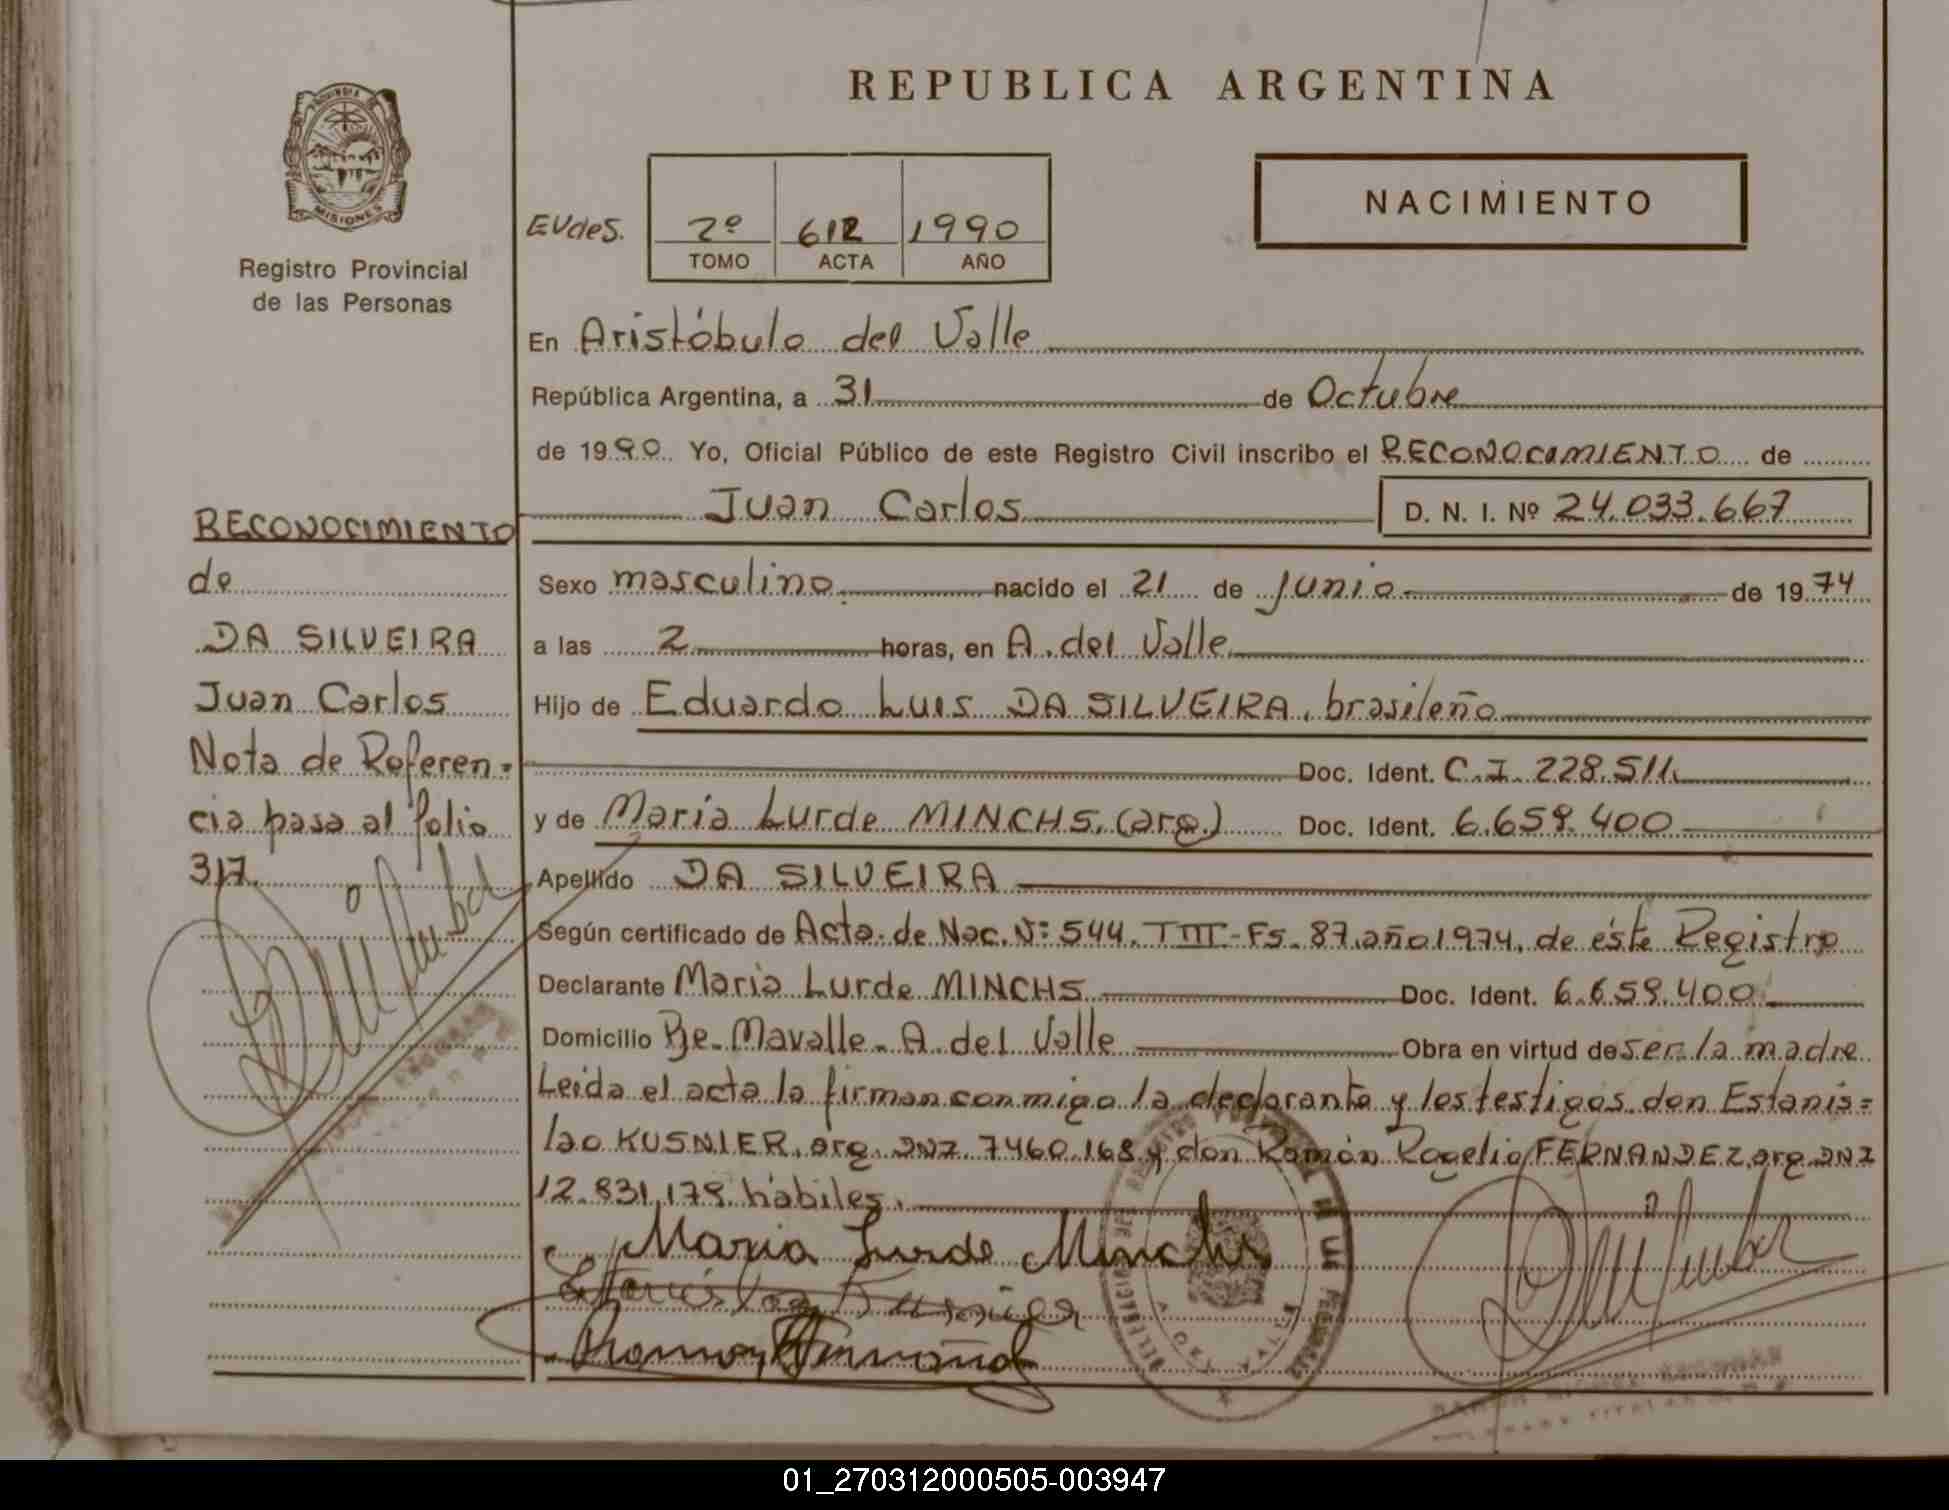 REPUBLICA ARGENTINA
PROVINCIA DE
MISIONES
Registro Provincial
de las Personas
EVdeS. 2º TOMO 612 ACTA 1990 AÑO
NACIMIENTO
En Aristóbulo del Valle
República Argentina, a 31 de Octubre
de 1990. Yo, Oficial Público de este Registro Civil inscribo el RECONOCIMIENTO de
Juan Carlos D. N. I. Nº 24.033.667
RECONOCIMIENTO
de
DA SILVEIRA
Juan Carlos
Nota de Referen=
cia pasa al folio
317.
Sexo masculino nacido el 21 de junio de 1974
a las 2 horas, en A. del Valle
Hijo de Eduardo Luis DA SILVEIRA, brasileño
Doc. Ident. C.I. 228.511.
y de María Lurde MINCHS, (arg.) Doc. Ident. 6.659.400
Apellido DA SILVEIRA
Según certificado de Acta de Nac. Nº 544, TIII-Fs. 87, año 1974, de éste Registro
Declarante María Lurde MINCHS Doc. Ident. 6.659.400
Domicilio Bje. Mavalle - A. del Valle Obra en virtud de ser la madre
Leída el acta la firman conmigo la declarante y los testigos don Estanis=
lao KUSNIER, arg. DNI. 7460.168 y don Ramón Rogelio FERNANDEZ, arg DNI
12.831.179. hábiles.
Maria Lurde Minchs
01_270312000505-003947